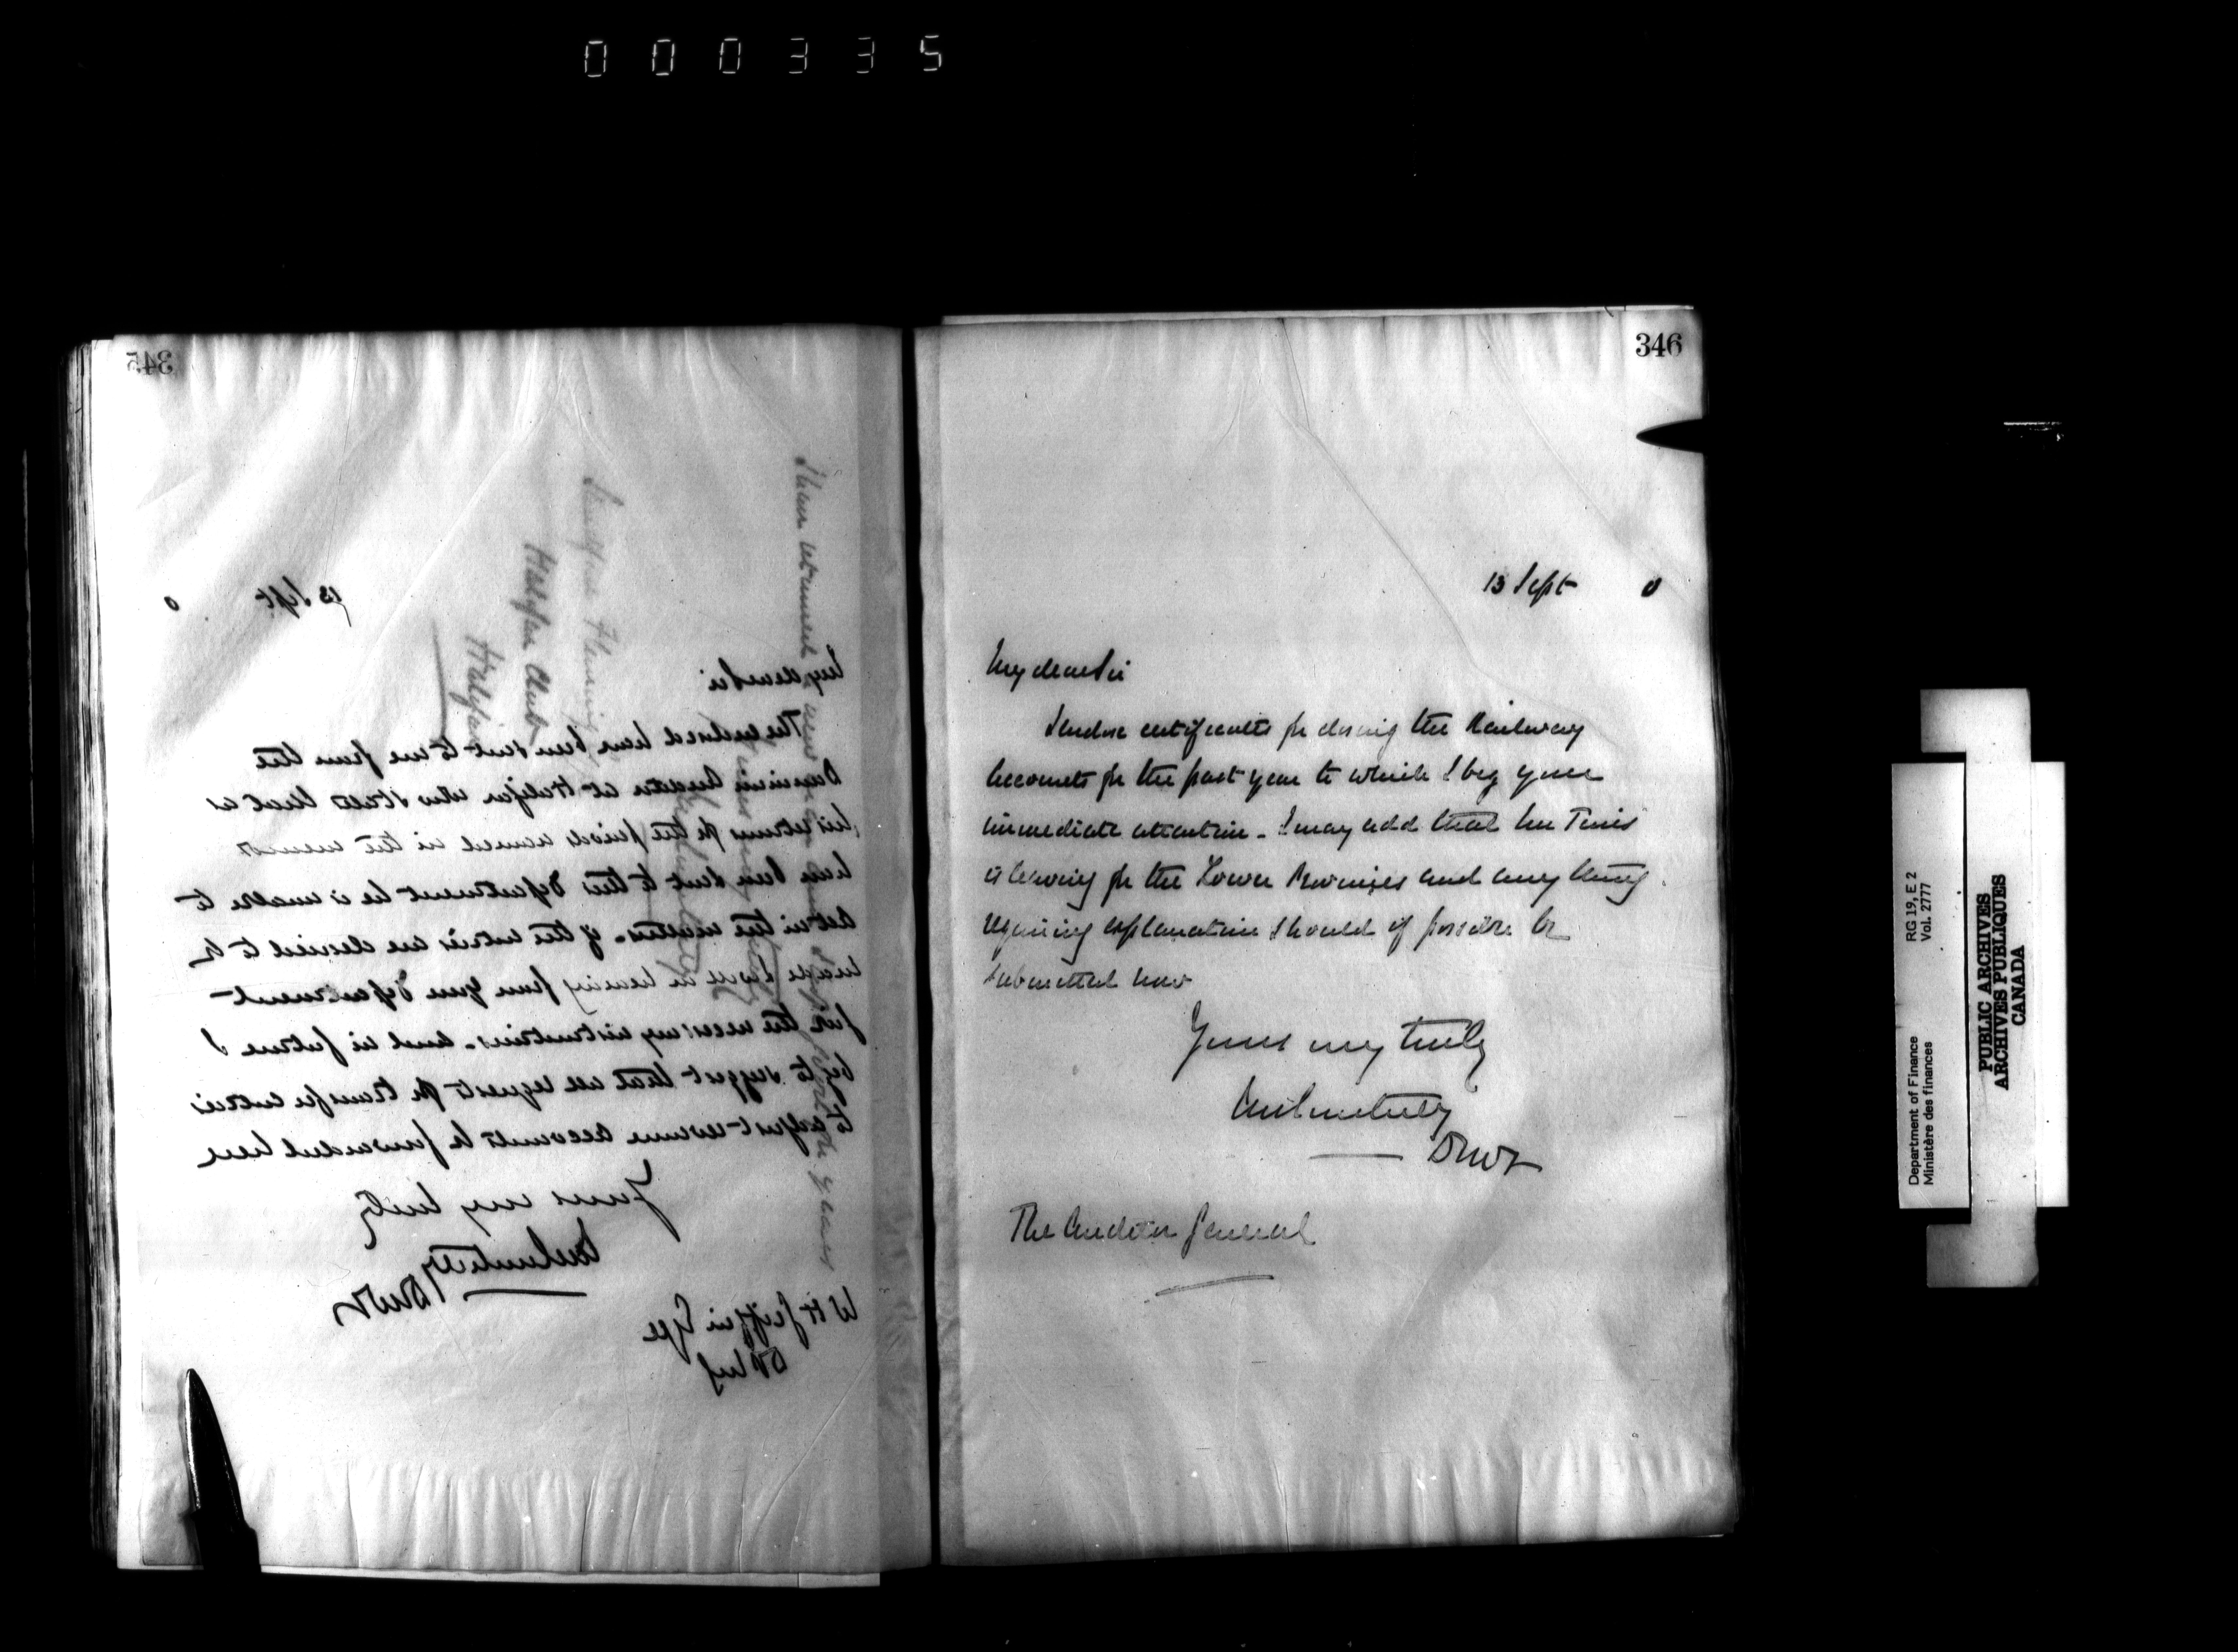 000335
345
13 Sept 0
My dear Sir
The enclosed have been sent to me from the
Dominion Auditor at Halifax who states that as
his returns for the periods named in the
have been sent to this Department he is unable to
act in the matter. If the entries are desired to be
made I will on hearing from your Department
give the necessary instructions. And in future I
beg to suggest that all requests for transfer entries
to adjust revenue accounts be forwarded here
Yours very truly
DMF
W H Griffin Esqre
Sandford Fleming
Halifax Club
Halifax
346
13 Sept 0
My dear Sir
I enclose certificates for closing the Railway
Accounts for the past year to which I beg your
immediate attention. I may add that Mr Tims
is leaving for the Lower Provinces and any thing
requiring explanation should if possible be
submitted now
Yours very truly
DMF
The Auditor General
RG 19, E 2
Vol. 2777
Department of Finance
Ministère des finances
PUBLIC ARCHIVES
ARCHIVES PUBLIQUES
CANADA